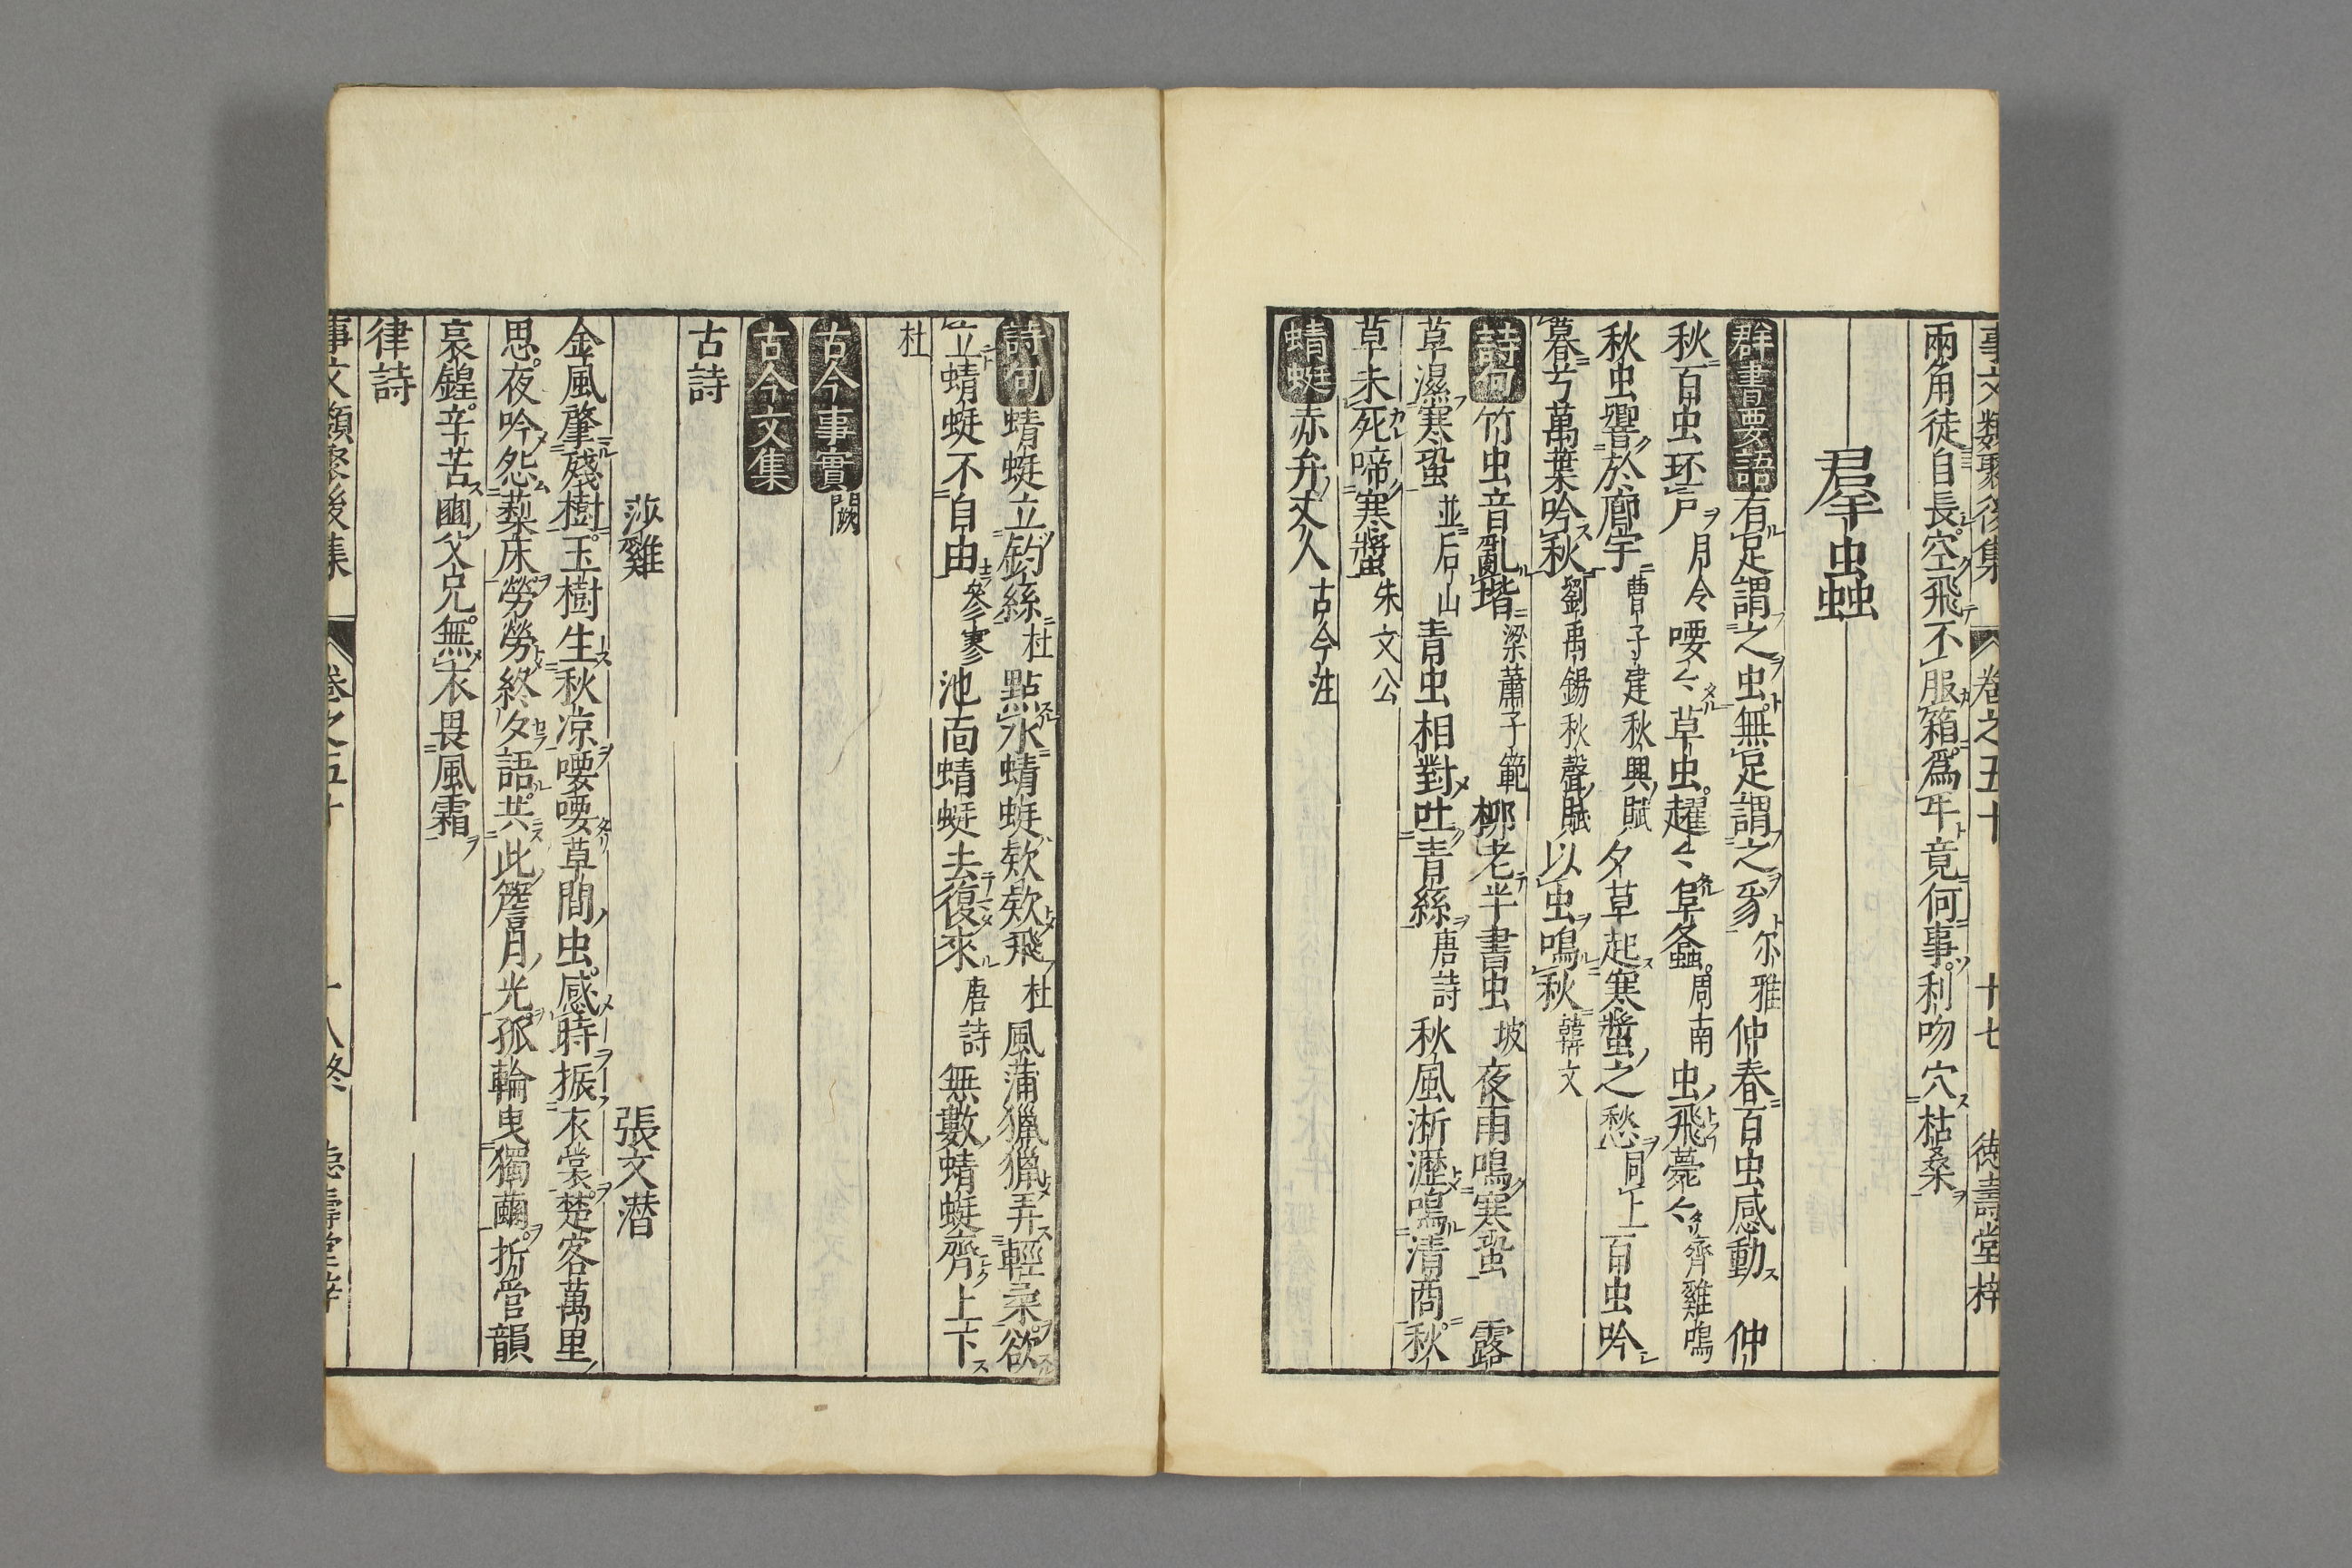 事文類聚後集 卷之五十 十七 德壽堂梓
兩角徒自長空飛不服箱爲牛竟何事利吻穴枯桑
羣虫蟲
群書要語 有足謂之虫無足謂之豸 尔雅 仲春百虫感動 仲
秋百虫坯戸 月令 喓〻草虫趯〻阜螽 周南 虫飛薨〻 齊雞鳴
秋虫響於廊宇 曹子建秋興賦 夕草起寒螿之愁 同上 百虫吟
暮兮萬葉吟秋 劉禹錫秋聲賦 以虫鳴秋 韓文
詩句 竹虫音亂堦 梁蕭子範 柳老半書虫 坡 夜雨鳴寒蛩 露
草濕寒蛩 並后山 青虫相對吐青絲 唐詩 秋風淅瀝鳴清商秋
草未死啼寒螿 朱文公
蜻蜓 赤弁丈人 古今注
詩句 蜻蜓立釣絲 杜 點水蜻蜓欵欵飛 杜 風蒲獵獵弄輕柔欲
立蜻蜓不自由 參寥 池面蜻蜓去復來 唐詩 無數蜻蜓齊上下
杜
古今事實 闕
古今文集
古詩
莎雞 張文潜
金風肇殘樹玉樹生秋凉喓喓草間虫感時振衣裳楚客萬里
思夜吟怨藜床勞勞終夕語共此簷月光孤輪曳獨繭折管韻
哀鍠辛苦豳父兄無衣畏風霜
律詩
事文類聚後集 卷之五十 十八終 德壽堂梓